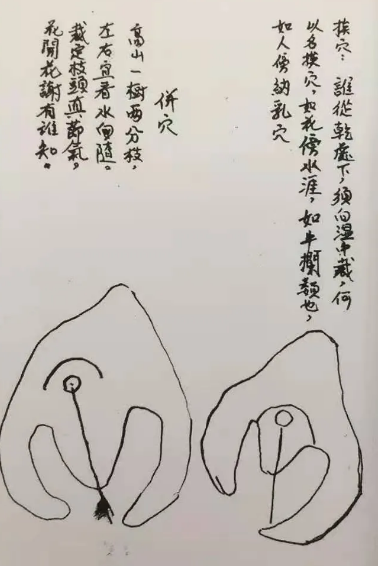 挨穴：誰從乾處下，須向湿中裁，何
以名挨穴，如花傍水涯，如牛攔類也，
如人傍納乳穴
併穴
高山一樹两分枝，
左右宜看水向隨。
裁定枝頭真節氣，
花開花謝有誰知。